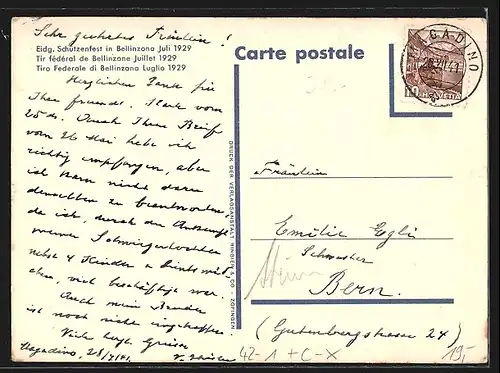 Sehr geehrtes Fräulein!
Eidg. Schützenfest in Bellinzona Juli 1929
Tir fédéral de Bellinzone Juillet 1929
Tiro Federale di Bellinzona Luglio 1929
Herzlichen Dank für
Ihre freundl. Karte vom
25 ds. Auch Ihren Brief
vom 26 Mai habe ich
richtig empfangen, aber
ich kam nicht dazu
denselben zu beantworten,
da ich, durch den
meiner Schwiegertochter
nebst 4 Kinder
viel beschäftigt war.
Auch mein Bruder
ist noch nicht eingetroffen.
Viele herzl. Grüsse
Magadino, 28/7/41.
Carte postale
MAGADINO
10 HELVETIA
DRUCK DER VERLAGSANSTALT RINGIER & CO. - ZOFINGEN
Fräulein
Emilie Egli
Schwester
Bern.
(Gutenbergstrasse 24)
42-1 + C-X
19,-